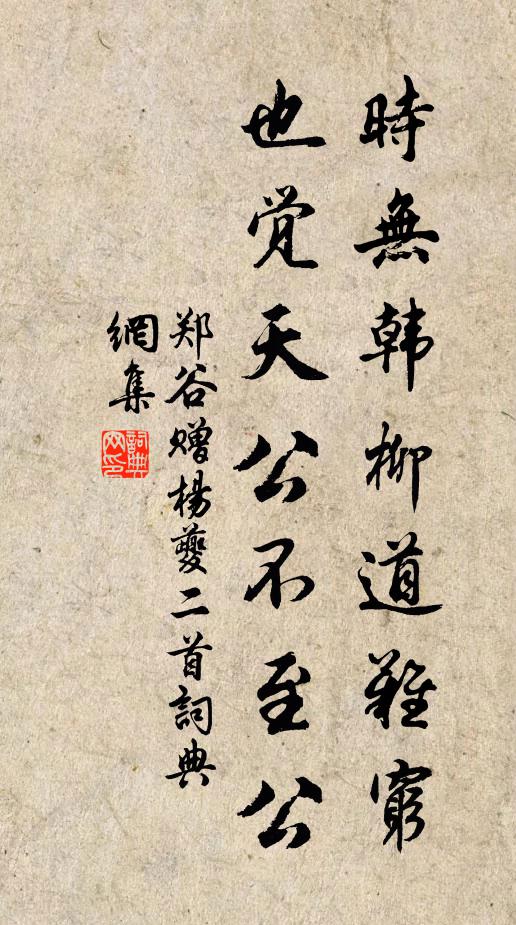 時無韩柳道難窮
也覚天公不至公
郑谷赠楊夔二首詞典
網集
詞典网印